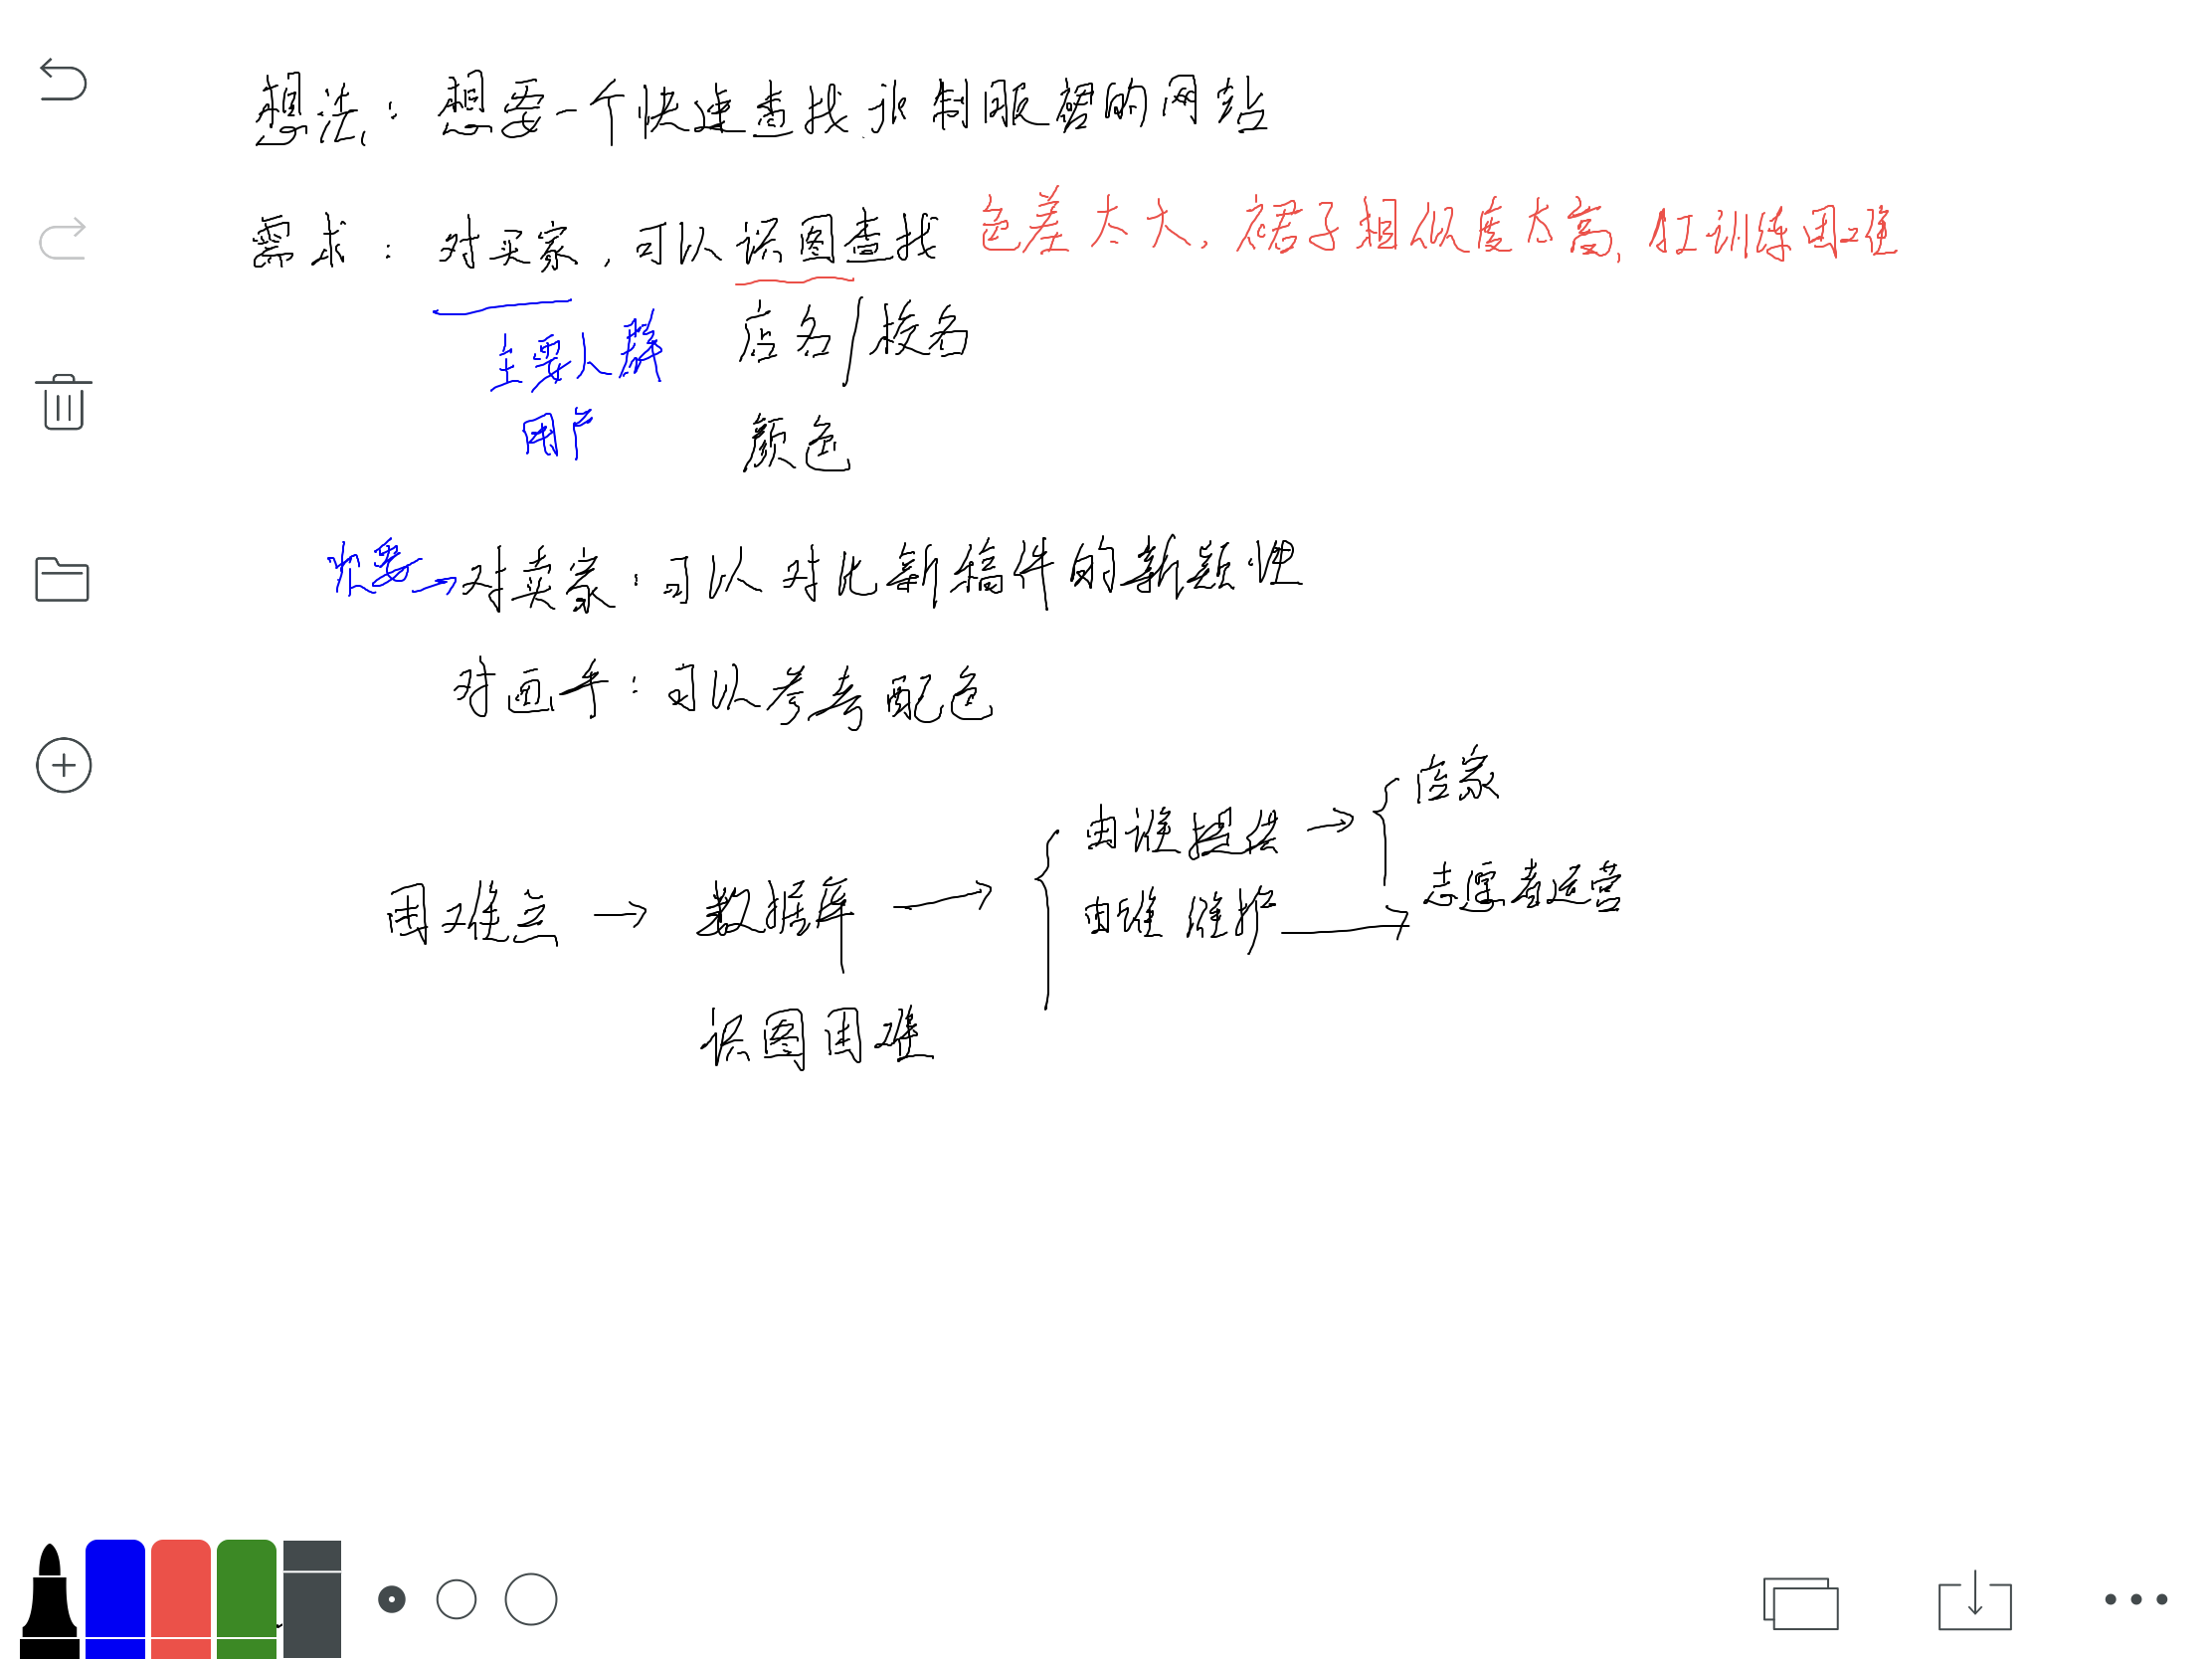 想法：想要一个快速查找jk制服裙的网站
需求：对买家，可以识图查找 色差太大，裙子相似度太高，打训练困难
主要人群 店名/校名
用户 颜色
次要→对卖家：可以对比新稿件的新颖性
对画手：可以参考配色
困难点→数据库→{由谁提供→{店家
由谁维护→志愿者运营
识图困难